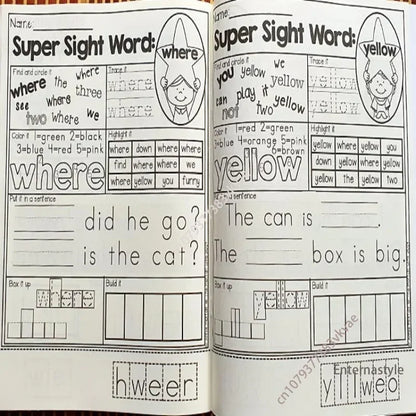 Name:
Super Sight Word:
where
Find and circle it
where
the
where
three
see
where
two
where
we
Trace it
where
where
Color it 1=green 2=black
3=blue 4=red 5=pink
where
Highlight it
where down where where
find where where we
where yellow you funny
Put it in a sentence
did he go?
is the cat?
Box it up
where
Build it
h w e e r
Name:
Super Sight Word:
yellow
Find and circle it
you
yellow
we
yellow
can
play
it
yellow
not
two
Trace it
yellow
yellow
Color it 1=red 2=green
3=blue 4=orange 5=pink
6=brown
yellow
Highlight it
where yellow you
down yellow where yellow
yellow the yellow two
Put it in a sentence
The can is .
The box is big.
Box it up
yellow
Build it
Enternastyle